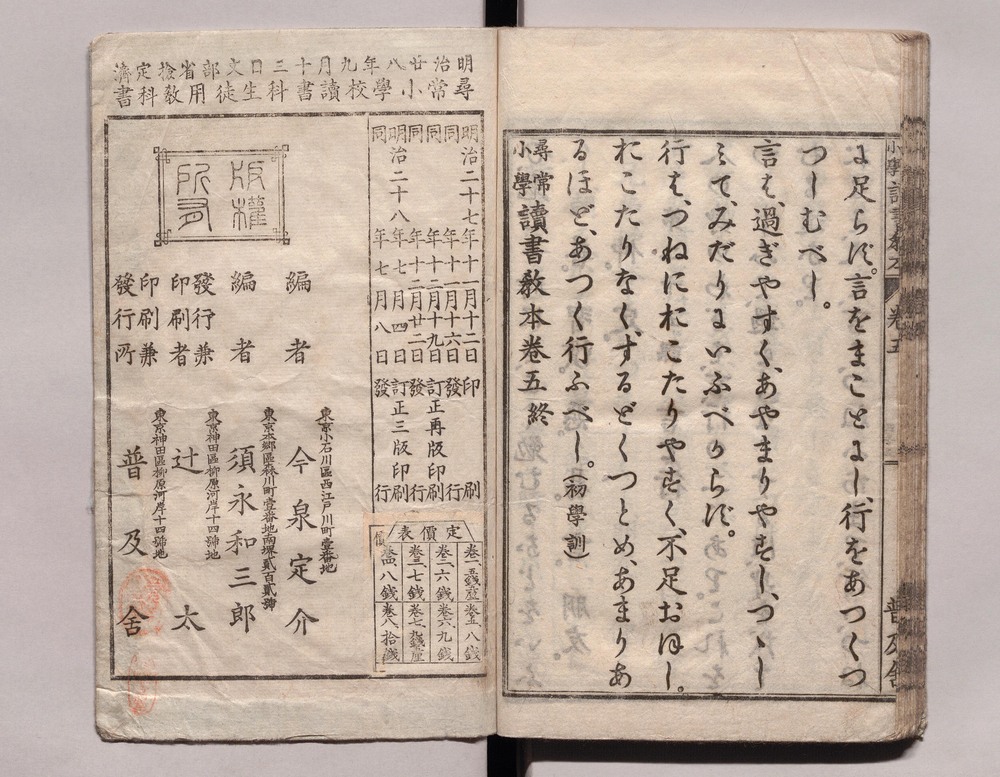 に足らず。言をまことにし、行をあつくつ
つしむべし。
言は、過ぎやすく、あやまりやすし、つゝし
みて、みだりにいふべからず。
行は、つねにおこたりやすく、不足おほし。
おこたりなく、するどくつとめ、あまりあ
るほど、あつく行ふべし。(初學訓)
尋常小學讀書敎本卷五 終
普及舍
明治廿八年九月十三日文部省檢定濟
尋常小學校讀書科生徒用敎科書
明治二十七年十一月十二日印刷
同年十一月十六日發行
同年十二月十九日訂正再版印刷
同年十二月廿二日發行
明治二十八年七月四日訂正三版印刷
同年七月八日發行
定價表
卷一、五錢五厘
卷二、六錢
卷三、七錢
卷四、八錢
卷五、八錢
卷六、九錢
卷八、拾錢
版權所有
東京小石川區西江戸川町壹番地
編者 今泉定介
東京本鄕區森川町壹番地南堺貳百貳號
編者 須永和三郎
東京神田區柳原河岸十四號地
發行兼印刷者 辻太
東京神田區柳原河岸十四號地
印刷兼發行所 普及舍